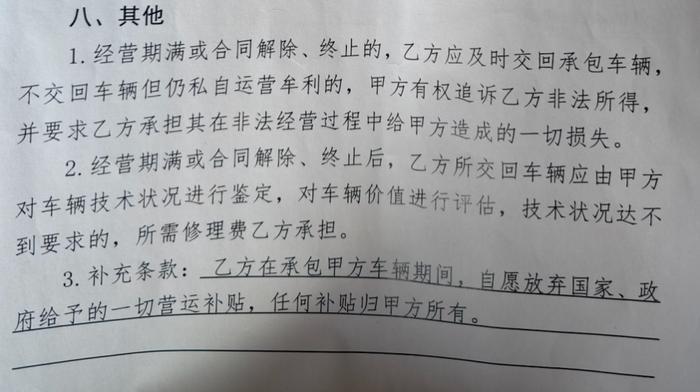 八、其他
1. 经营期满或合同解除、终止的，乙方应及时交回承包车辆，
不交回车辆但仍私自运营牟利的，甲方有权追诉乙方非法所得，
并要求乙方承担其在非法经营过程中给甲方造成的一切损失。
2. 经营期满或合同解除、终止后，乙方所交回车辆应由甲方
对车辆技术状况进行鉴定，对车辆价值进行评估，技术状况达不
到要求的，所需修理费乙方承担。
3. 补充条款：乙方在承包甲方车辆期间，自愿放弃国家、政
府给予的一切营运补贴，任何补贴归甲方所有。